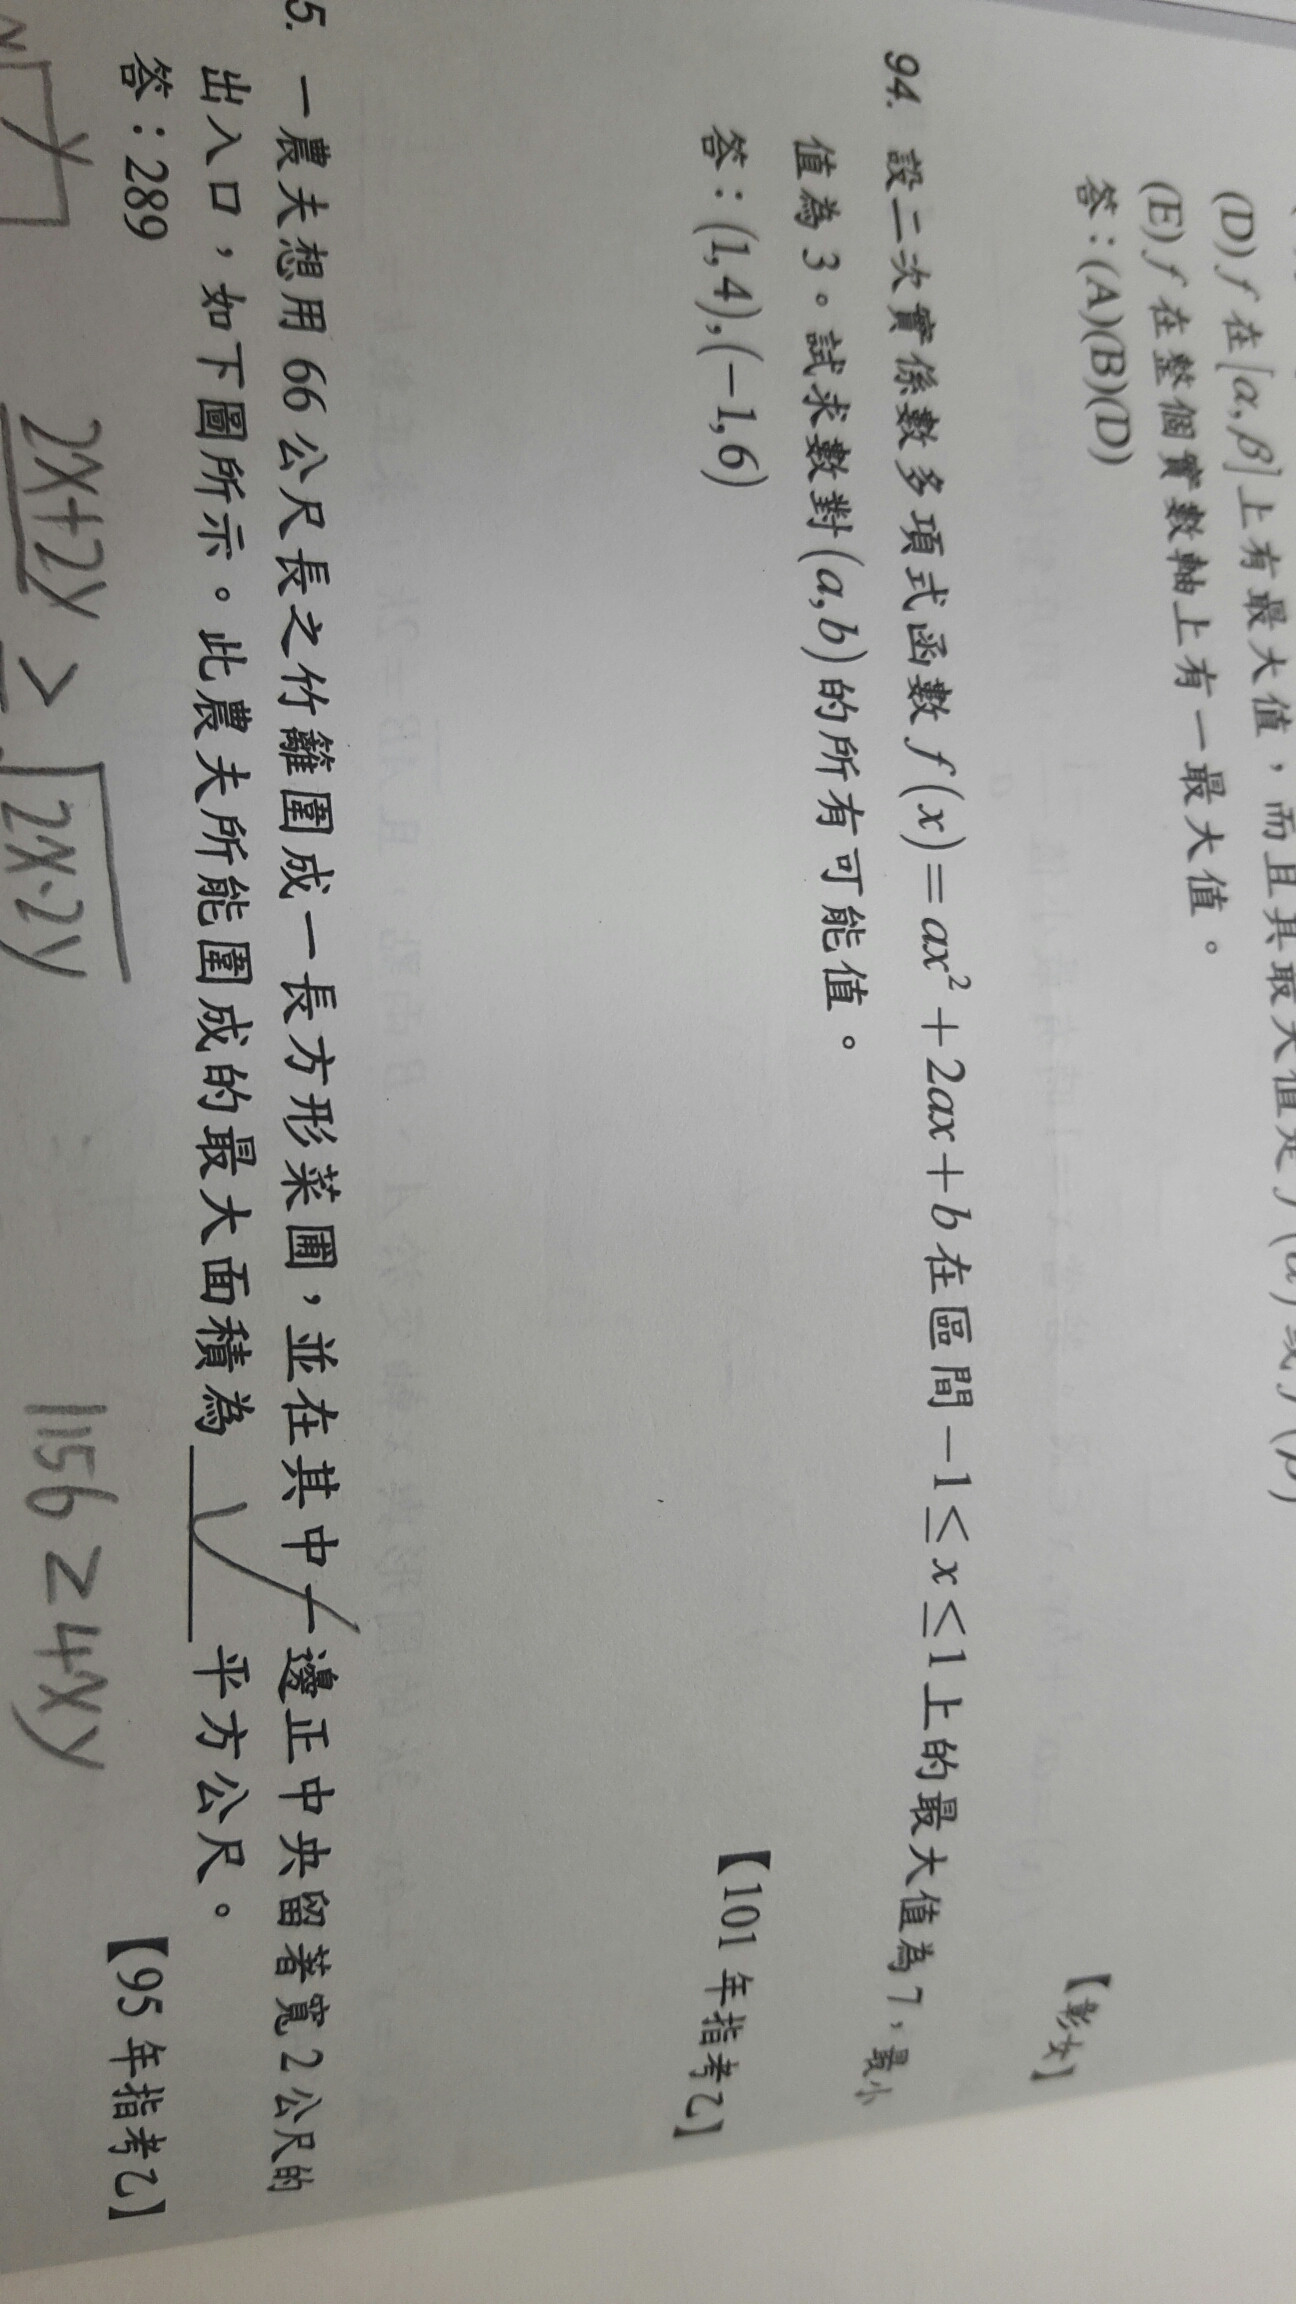 (D) f 在[α, β]上有最大值，而且其最大值是 f(α)或 f(β)
(E) f 在整個實數軸上有一最大值。
答：(A)(B)(D)
【彰女】
94. 設二次實係數多項式函數 f(x)=ax²+2ax+b 在區間 −1≤x≤1 上的最大值為7，最小
值為 3。試求數對(a,b)的所有可能值。
答：(1,4),(−1,6)
【101 年指考乙】
5. 一農夫想用 66 公尺長之竹籬圍成一長方形菜圃，並在其中一邊正中央留著寬 2 公尺的
出入口，如下圖所示。此農夫所能圍成的最大面積為 平方公尺。
答：289
【95 年指考乙】
y
2x+2y ≥ √2x·2y
1156 ≥ 4xy